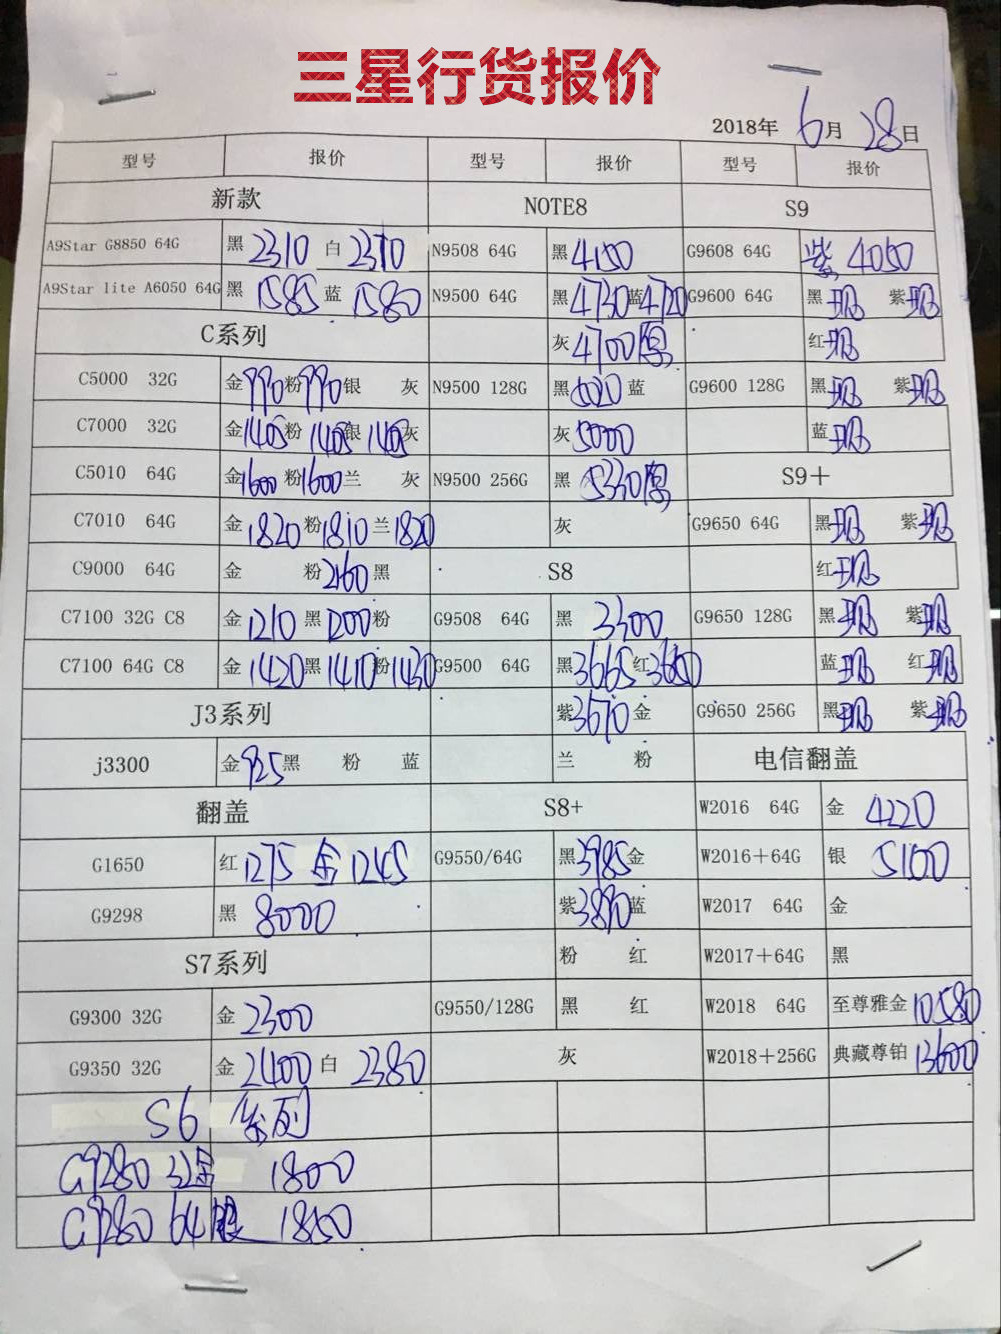 三星行货报价
2018年 6月 28日
型号 报价 型号 报价 型号 报价
新款 NOTE8 S9
A9Star G8850 64G 黑 2310 白 2310 N9508 64G 黑 4150 G9608 64G 紫 4050
A9Star lite A6050 64G 黑 1585 蓝 1580 N9500 64G 黑 4730 蓝 4720 G9600 64G 黑 现 紫 现
C系列 灰 4700 红 现
C5000 32G 金 990 粉 990 银 灰 N9500 128G 黑 蓝 G9600 128G 黑 现 紫 现
C7000 32G 金 1405 粉 1405 银 1405 灰 灰 5000 蓝 现
C5010 64G 金 1600 粉 1600 兰 灰 N9500 256G 黑 5330 S9+
C7010 64G 金 1820 粉 1810 兰 1820 灰 G9650 64G 黑 现 紫 现
C9000 64G 金 粉 2160 黑 S8 红 现
C7100 32G C8 金 1210 黑 1200 粉 G9508 64G 黑 3300 G9650 128G 黑 现 紫 现
C7100 64G C8 金 1420 黑 1410 粉 1430 G9500 64G 黑 3665 红 3650 蓝 现 红 现
J3系列 紫 3670 金 G9650 256G 黑 现 紫 现
j3300 金 925 黑 粉 蓝 兰 粉 电信翻盖
翻盖 S8+ W2016 64G 金 4220
G1650 红 1275 金 1245 G9550/64G 黑 3985 金 W2016+64G 银 5100
G9298 黑 8000 紫 3890 蓝 W2017 64G 金
S7系列 粉 红 W2017+64G 黑
G9300 32G 金 2300 G9550/128G 黑 红 W2018 64G 至尊雅金 10580
G9350 32G 金 2400 白 2380 灰 W2018+256G 典藏尊铂 13600
S6 系列
G9280 32金 1800
G9280 64银 1850